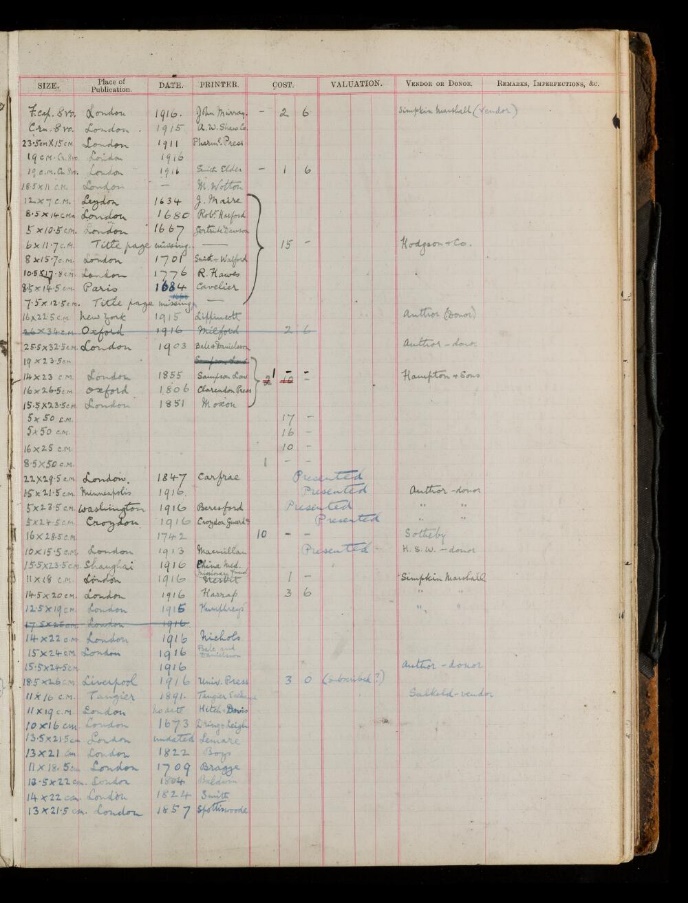 SIZE. Place of Publication. DATE. PRINTER. COST. VALUATION. VENDOR OR DONOR. REMARKS, IMPERFECTIONS, &c.
F.cap. 8vo. London 1916. John Murray. - 2 6 Simpkin Marshall (vendor)
Crn. 8vo. London. 1915. A.W. Shaw Co.
23.5cm X 15cm London 1911 Pharml. Press
19 cm. London 1916
19 c.m. London 1916 Smith Elder - 1 6
18.5 x 11 c.m. London — M. Wotton
12 x 7 c.m. Leydon 1634 J. Maire
8.5 x 14 cm London 1680 Robt. Harford
5 x 10.5 cm London 1667
6 x 11.7 c.m. Title page missing. — 15 - Hodgson & Co.
8 x 15.7 cm. London 1701 Smith & Walford
London 1776 R. Hawes
8.5 x 14.5 cm Paris 1684 Cavelier
7.5 x 12.5 cm. Title page missing —
16 x 22.5 cm. New York 1915 Lippincott Author (Donor)
26 x 34 cm. Oxford 1916 Milford 2 6
25.5 x 32.5 cm London 1903 Bale & Danielsson Author - donor
19 x 23.5 cm
14 x 23 c.m. London 1855 Sampson Low 1 - - Hampton & Sons
16 x 26.5 cm Oxford 1806 Clarendon Press
15.5 x 23.5 cm London 1851 Moxon
5 x 50 c.m. 17 -
5 x 50 c.m. 16 -
16 x 25 c.m. 10 -
8.5 x 50 c.m. 1 - -
22 x 29.5 cm London. 1847 Carfrae Presented
15 x 21.5 cm Minneapolis 1916 Presented Author - donor
5 x 23.5 cm Washington 1916 Beresford Presented " "
8 x 24.5 cm Croydon 1916 Croydon Guardn Presented " "
16 x 28.5 cm 1742 10 - - Sotheby
10 x 15.5 cm London 1913 Macmillan Presented H. S. W. - donor
15.5 x 23.5 cm Shanghai 1916 China Med. Missionary
11 x 18 cm. London 1916 Nesbit 1 - Simpkin Marshall
14.5 x 20 cm London 1916 Harrap 3 6 " "
12.5 x 19 cm London 1915 Humphreys " "
17.5 x 25 cm London 1916
14 x 22 cm London 1916 Nichols
15 x 24 cm London 1916 Bale and Danielsson
15.5 x 24.5 cm 1916 Author - donor
18.5 x 26 cm Liverpool 1916 Univ. Press 3 0 (subscribed?)
11 x 16 c.m. Tangier 1891. Sabkeld - vendor
11 x 19 c.m. London Hitch & Davis
10 x 16 cm London 1673
13.5 x 21.5 cm London undated Lemare
13 x 21 cm London 1822 Boys
11 x 18.5 cm London 1709 Bragge
13.5 x 22 cm. London 1804 Baldwin
14 x 22 cm. London 1824 Smith
13 x 21.5 cm. London 1857 Spottiswoode